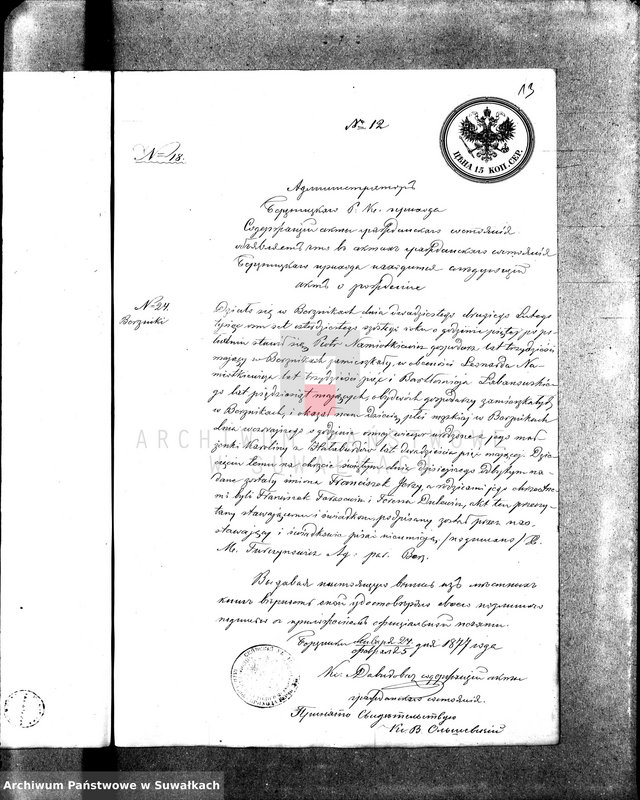 13
№ 12
№ 18.
ЦѢНА 15 КОП. СЕР.
Администраторъ
Бержницкаго Р. К. прихода
Содержащій акты гражданскаго состоянія
объявляетъ что въ актахъ гражданскаго состоянія
Бержницкаго прихода находится слѣдующій
актъ о рожденіи
№ 24.
Berzniki
Działo się w Berznikach dnia dwudziestego drugiego Lutego
tysiąc ośmset roku o godzinie piątej po po-
łudniu stawił się Piotr Namiotkiewicz gospodarz lat trzydzieści
mający w Berznikach zamieszkały, w obecności Leonarda Na-
miotkiewicza lat trzydzieści pięć i Bartłomieja Labanowskie-
go lat pięćdziesiąt mających, obydwóch gospodarzy zamieszkałych
w Berznikach, i okazał nam dziecię płci męskiej w Berznikach
dnia wczorajszego o godzinie urodzone z jego mał-
żonki Karoliny z Hałaburdów lat dwadzieścia pięć mającej. Dzie-
cięciu temu na chrzcie świętym dnia dzisiejszego odbytym na-
dane zostały imiona Franciszek Jerzy a rodzicami jego chrzestne-
mi byli Franciszek i Akt ten przeczy-
tany stawającemu i świadkom, podpisany został przez nas
stawający i świadkowie pisać nieumieją, /podpisano/ X.
M. Turczynowicz Ad: par. Ber.
Выдавая настоящую выпись изъ мѣстныхъ
книгъ вѣрность оной удостовѣряю своею
подписью съ приложеніемъ оффиціальной печати.
Бержники Января 24 / Февраля 5 дня 1877 года
Кс. Давидовичъ содержащій акты
гражданскаго состоянія.
Принято Свидѣтельствую
Кс. В. Ольшевскій
ARCHIWUM PAŃSTWOWE
W SUWAŁKACH
Archiwum Państwowe w Suwałkach